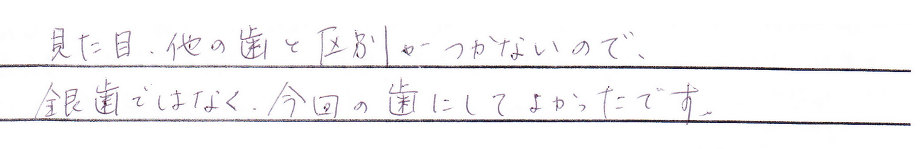 見た目、他の歯と区別がつかないので、
銀歯ではなく、今回の歯にしてよかったです。